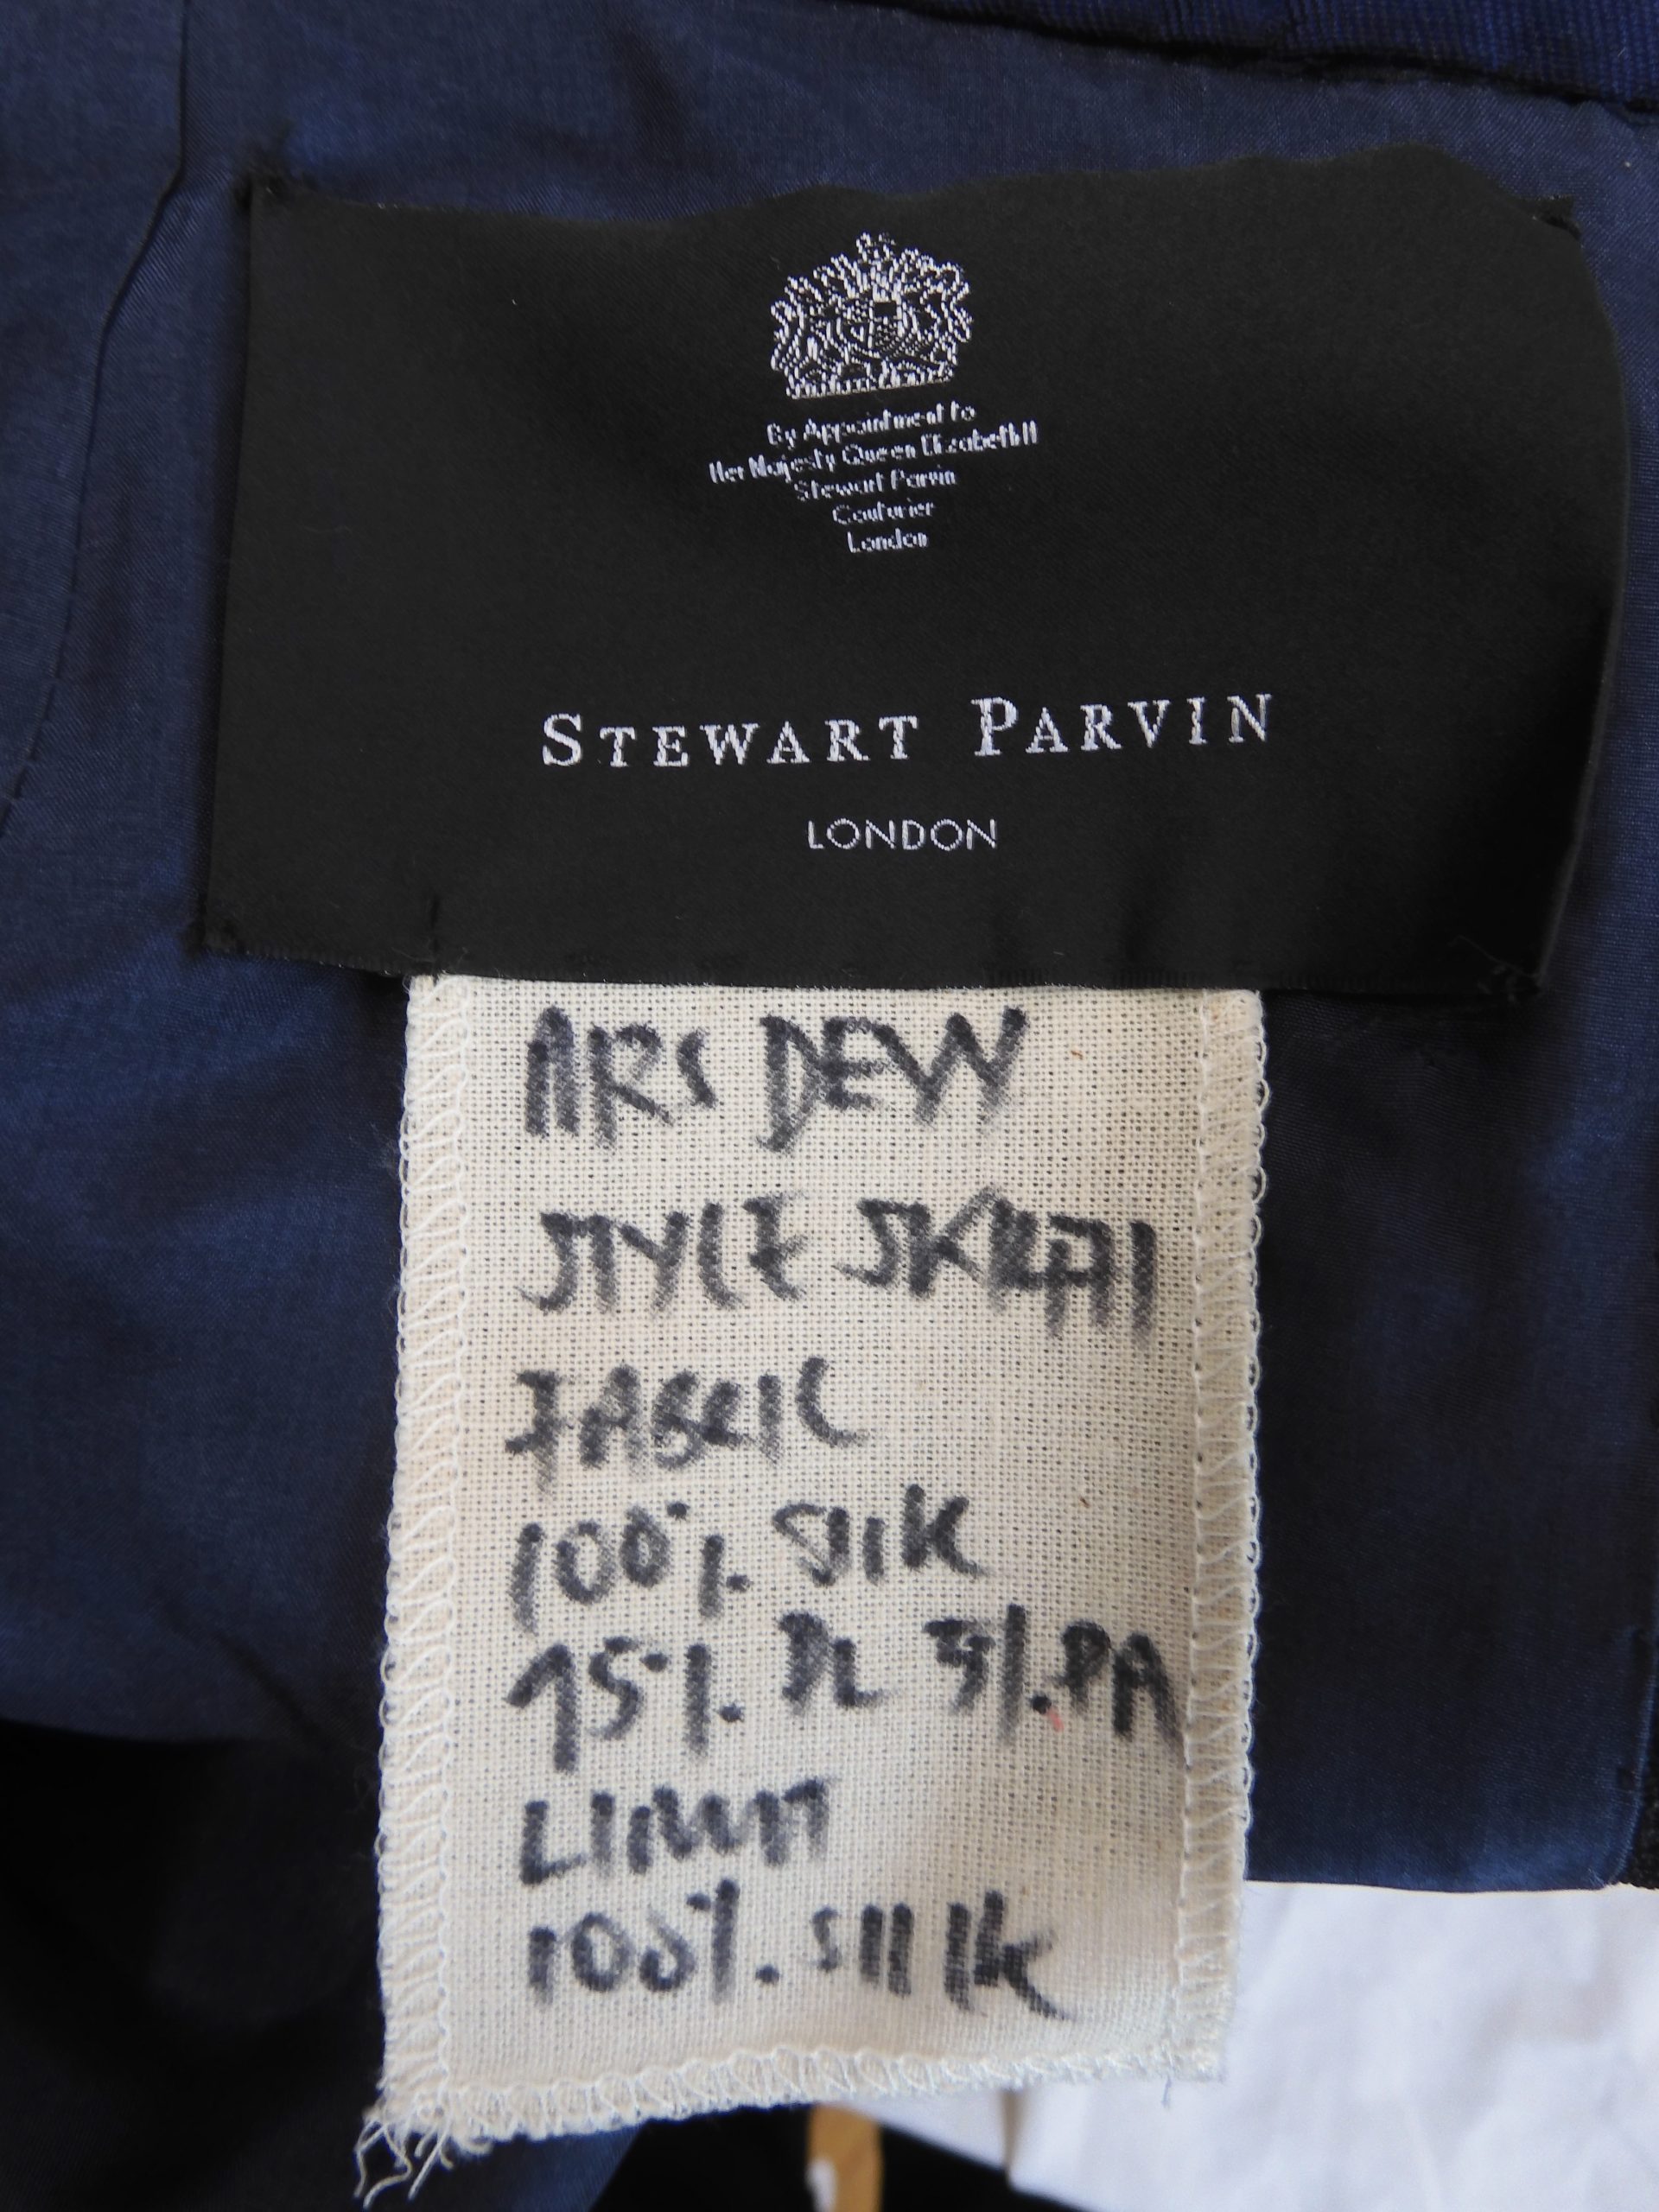 By Appointment to
Her Majesty Queen Elizabeth II
Stewart Parvin
Couturier
London
STEWART PARVIN
LONDON
MRS DEW
STYLE
FABRIC
100%. SILK
PL PA
100%. SILK